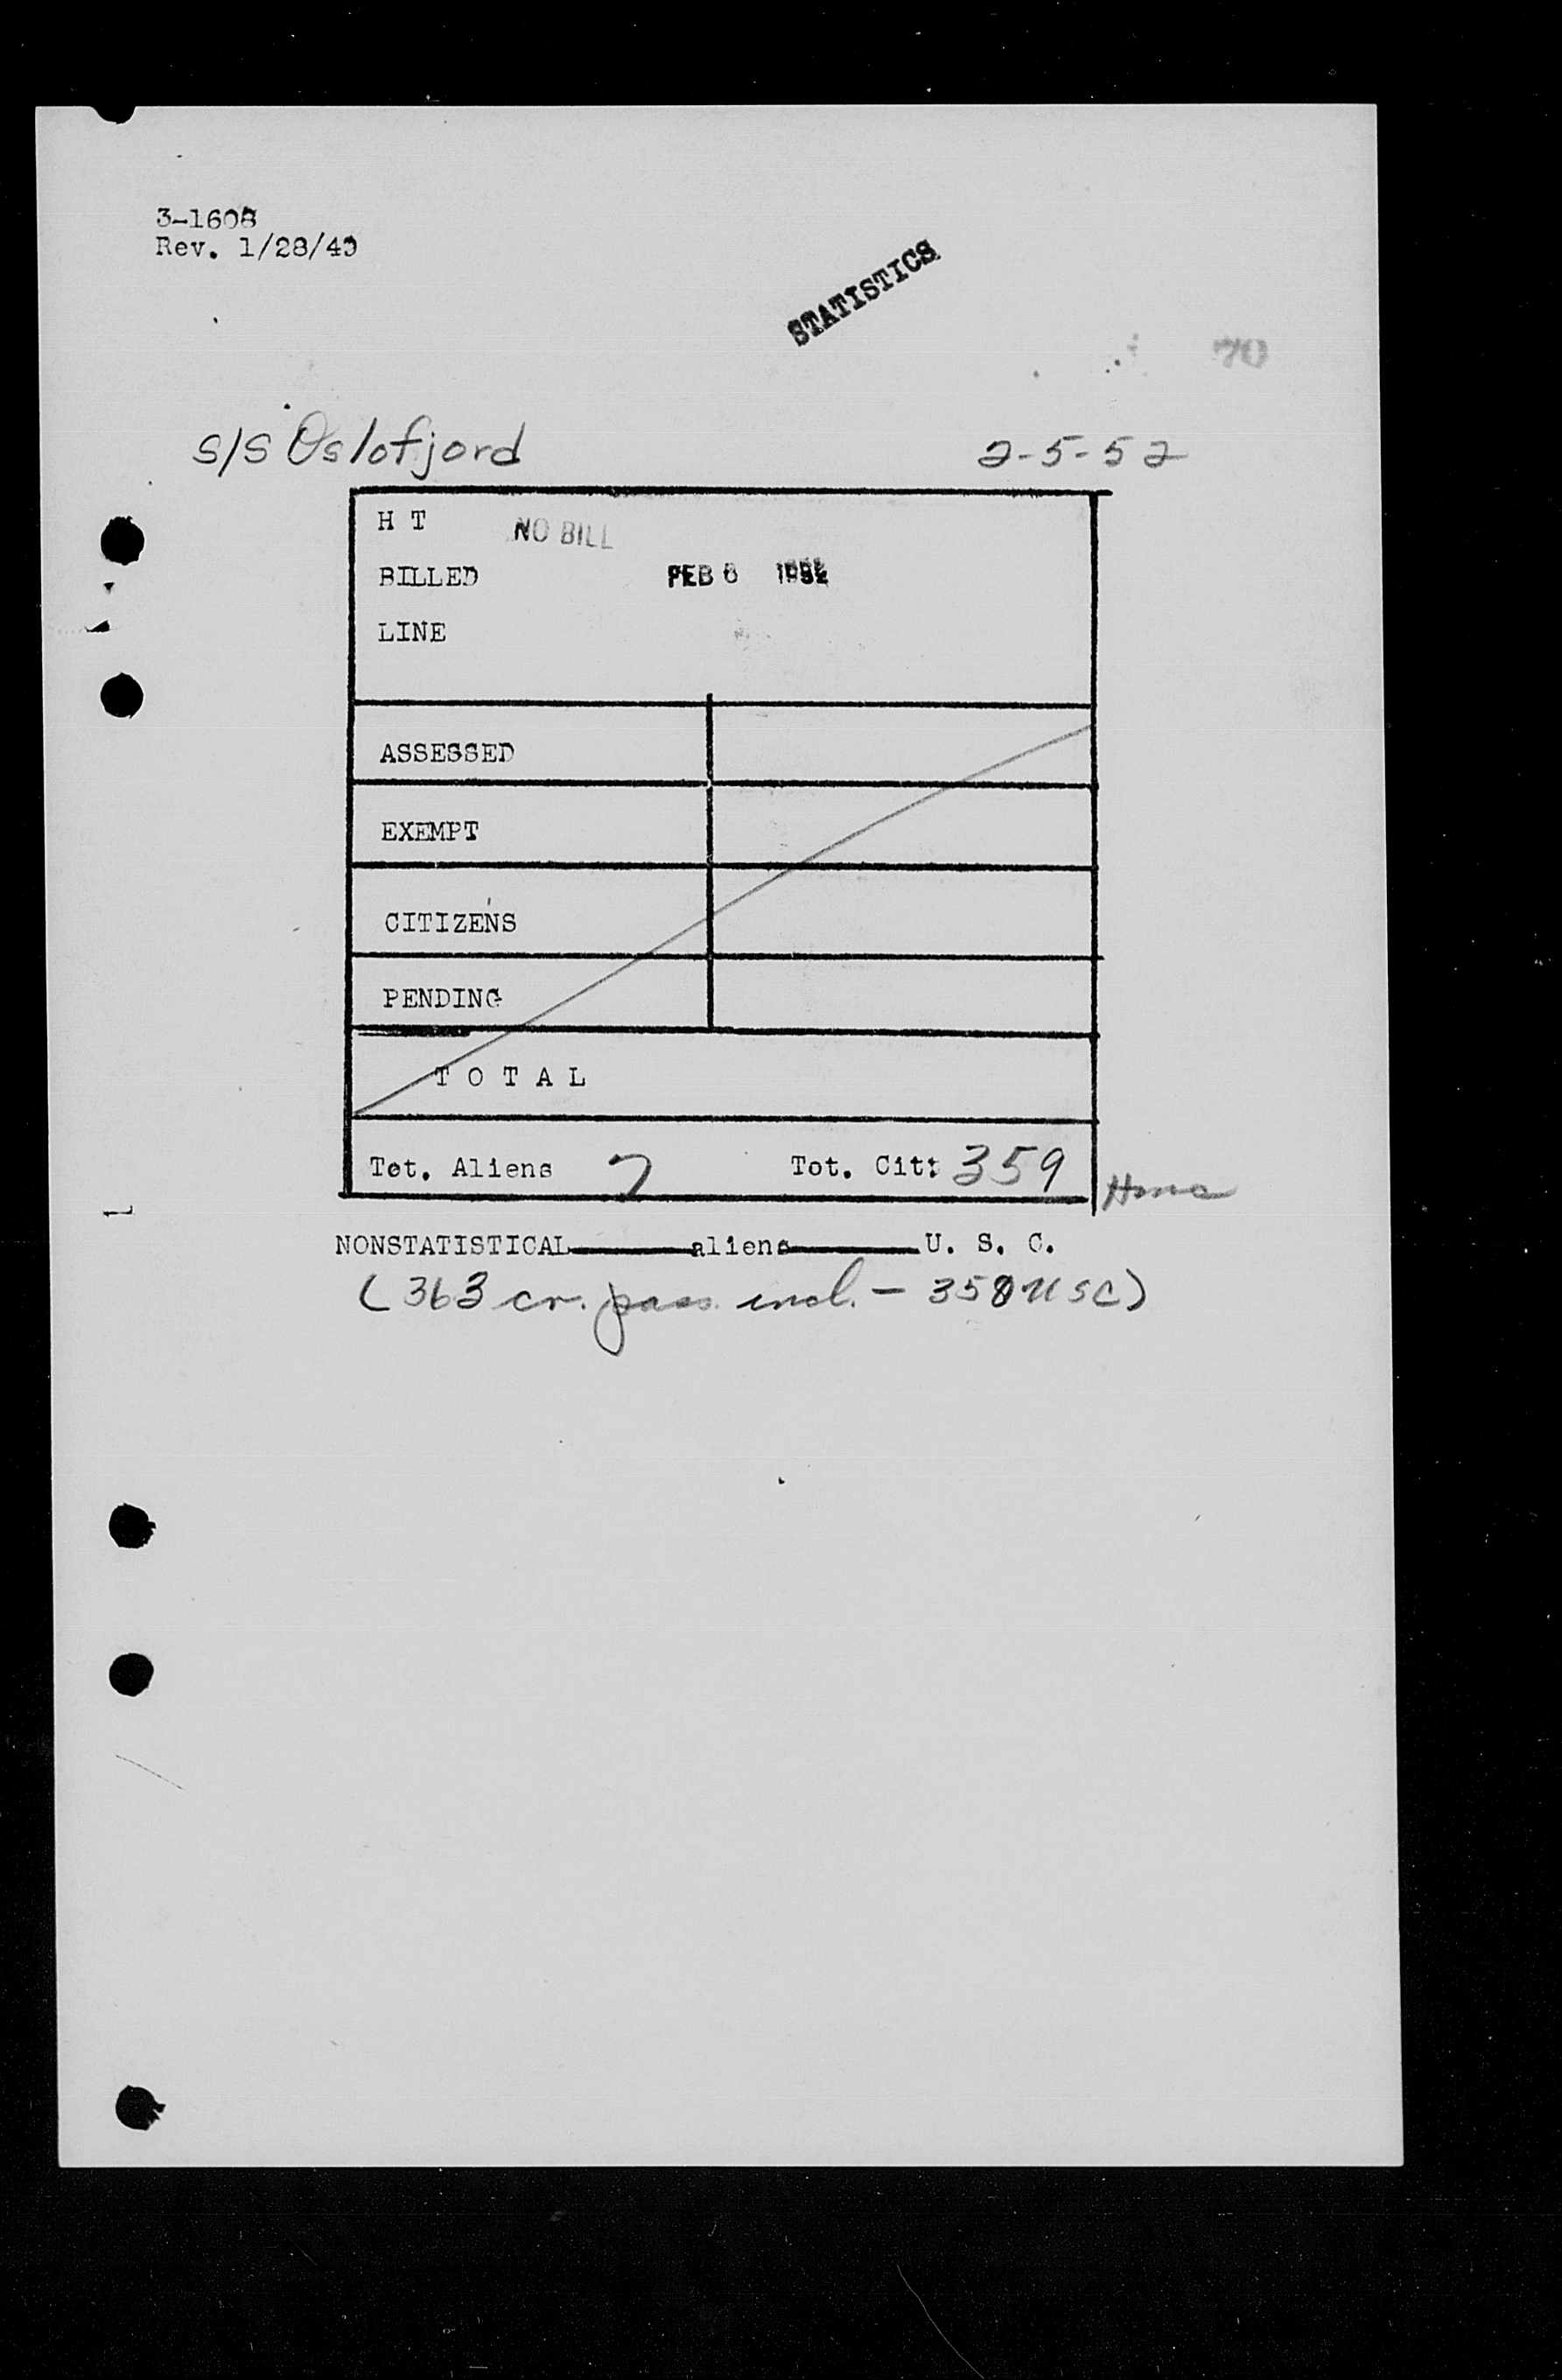 3-1608
Rev. 1/28/49
STATISTICS
70
S/S Oslofjord 2-5-52
H T NO BILL
BILLED FEB 6 1952
LINE
ASSESSED
EXEMPT
CITIZENS
PENDING
T O T A L
Tot. Aliens 7 Tot. Cit: 359
NONSTATISTICAL aliens U. S. C.
(363 cr. pass. incl. - 358 USC)